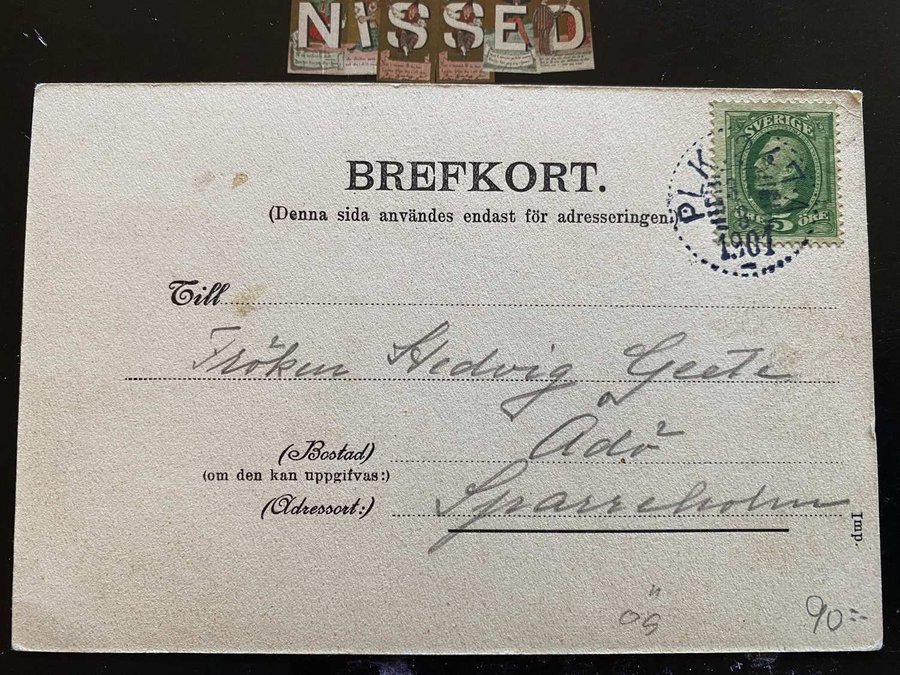 NISSED
BREFKORT.
(Denna sida användes endast för adresseringen.)
SVERIGE
5 ÖRE
PLK
1901
Till
Fröken Hedvig Geete
Adö
(Bostad)
(om den kan uppgifvas:)
(Adressort:) Sparreholm
Imp.
90:-